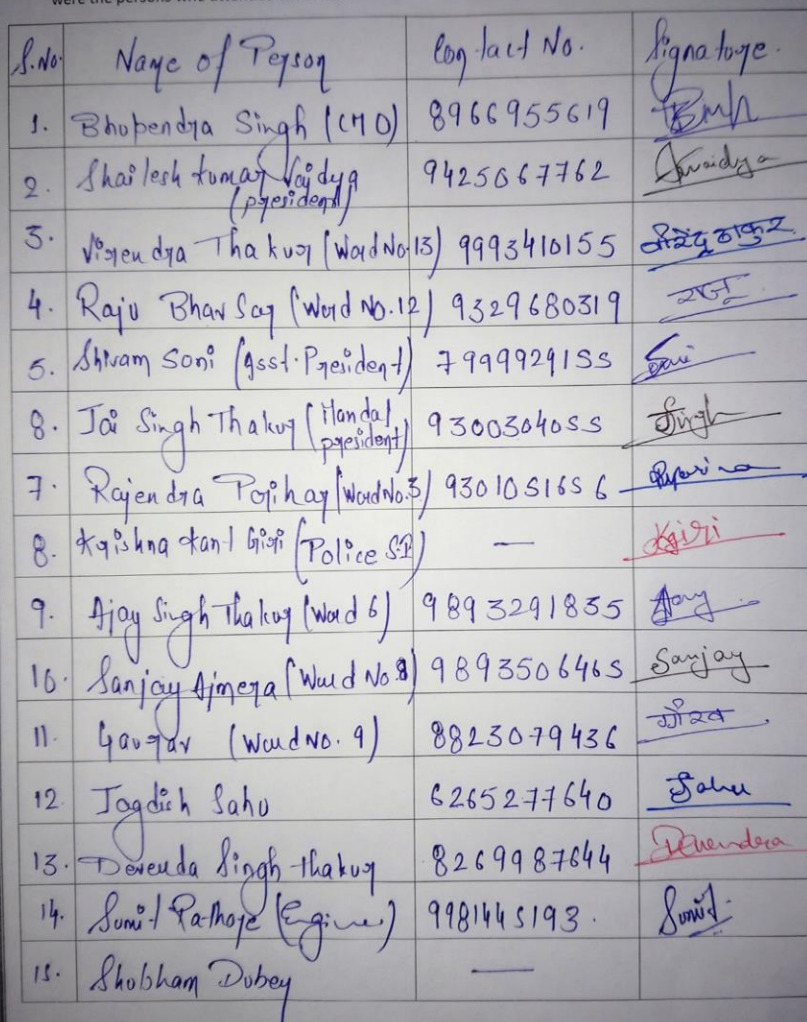 S.No. Name of Person Contact No. Signature.
1. Bhupendra Singh (CMO) 8966955619
2. Shailesh Kumar Vaidya (president) 9425067762 Svaidya
3. Virendra Thakur (Ward No.13) 9993410155 वीरेंद्र ठाकुर
4. Raju Bhavsar (Ward No.12) 9329680319 राजू
5. Shivam Soni (Asst. President) 7999929155 Soni
8. Jai Singh Thakur (Mandal president) 9300304055 Singh
7. Rajendra Parihar (Ward No.3) 9301051656
8. Krishna Kant Giri (Police SI) — Kgiri
9. Ajay Singh Thakur (Ward 6) 9893291835 Ajay
10. Sanjay Ajmera (Ward No.8) 9893506465 Sanjay
11. Gaurav (Ward No. 9) 8823079436 गौरव
12. Jagdish Sahu 6265277640 Sahu
13. Devenda Singh Thakur 8269987644 Devendra
14. Sumit Rathore (Engineer) 9981445193. Sumit
15. Shubham Dubey —